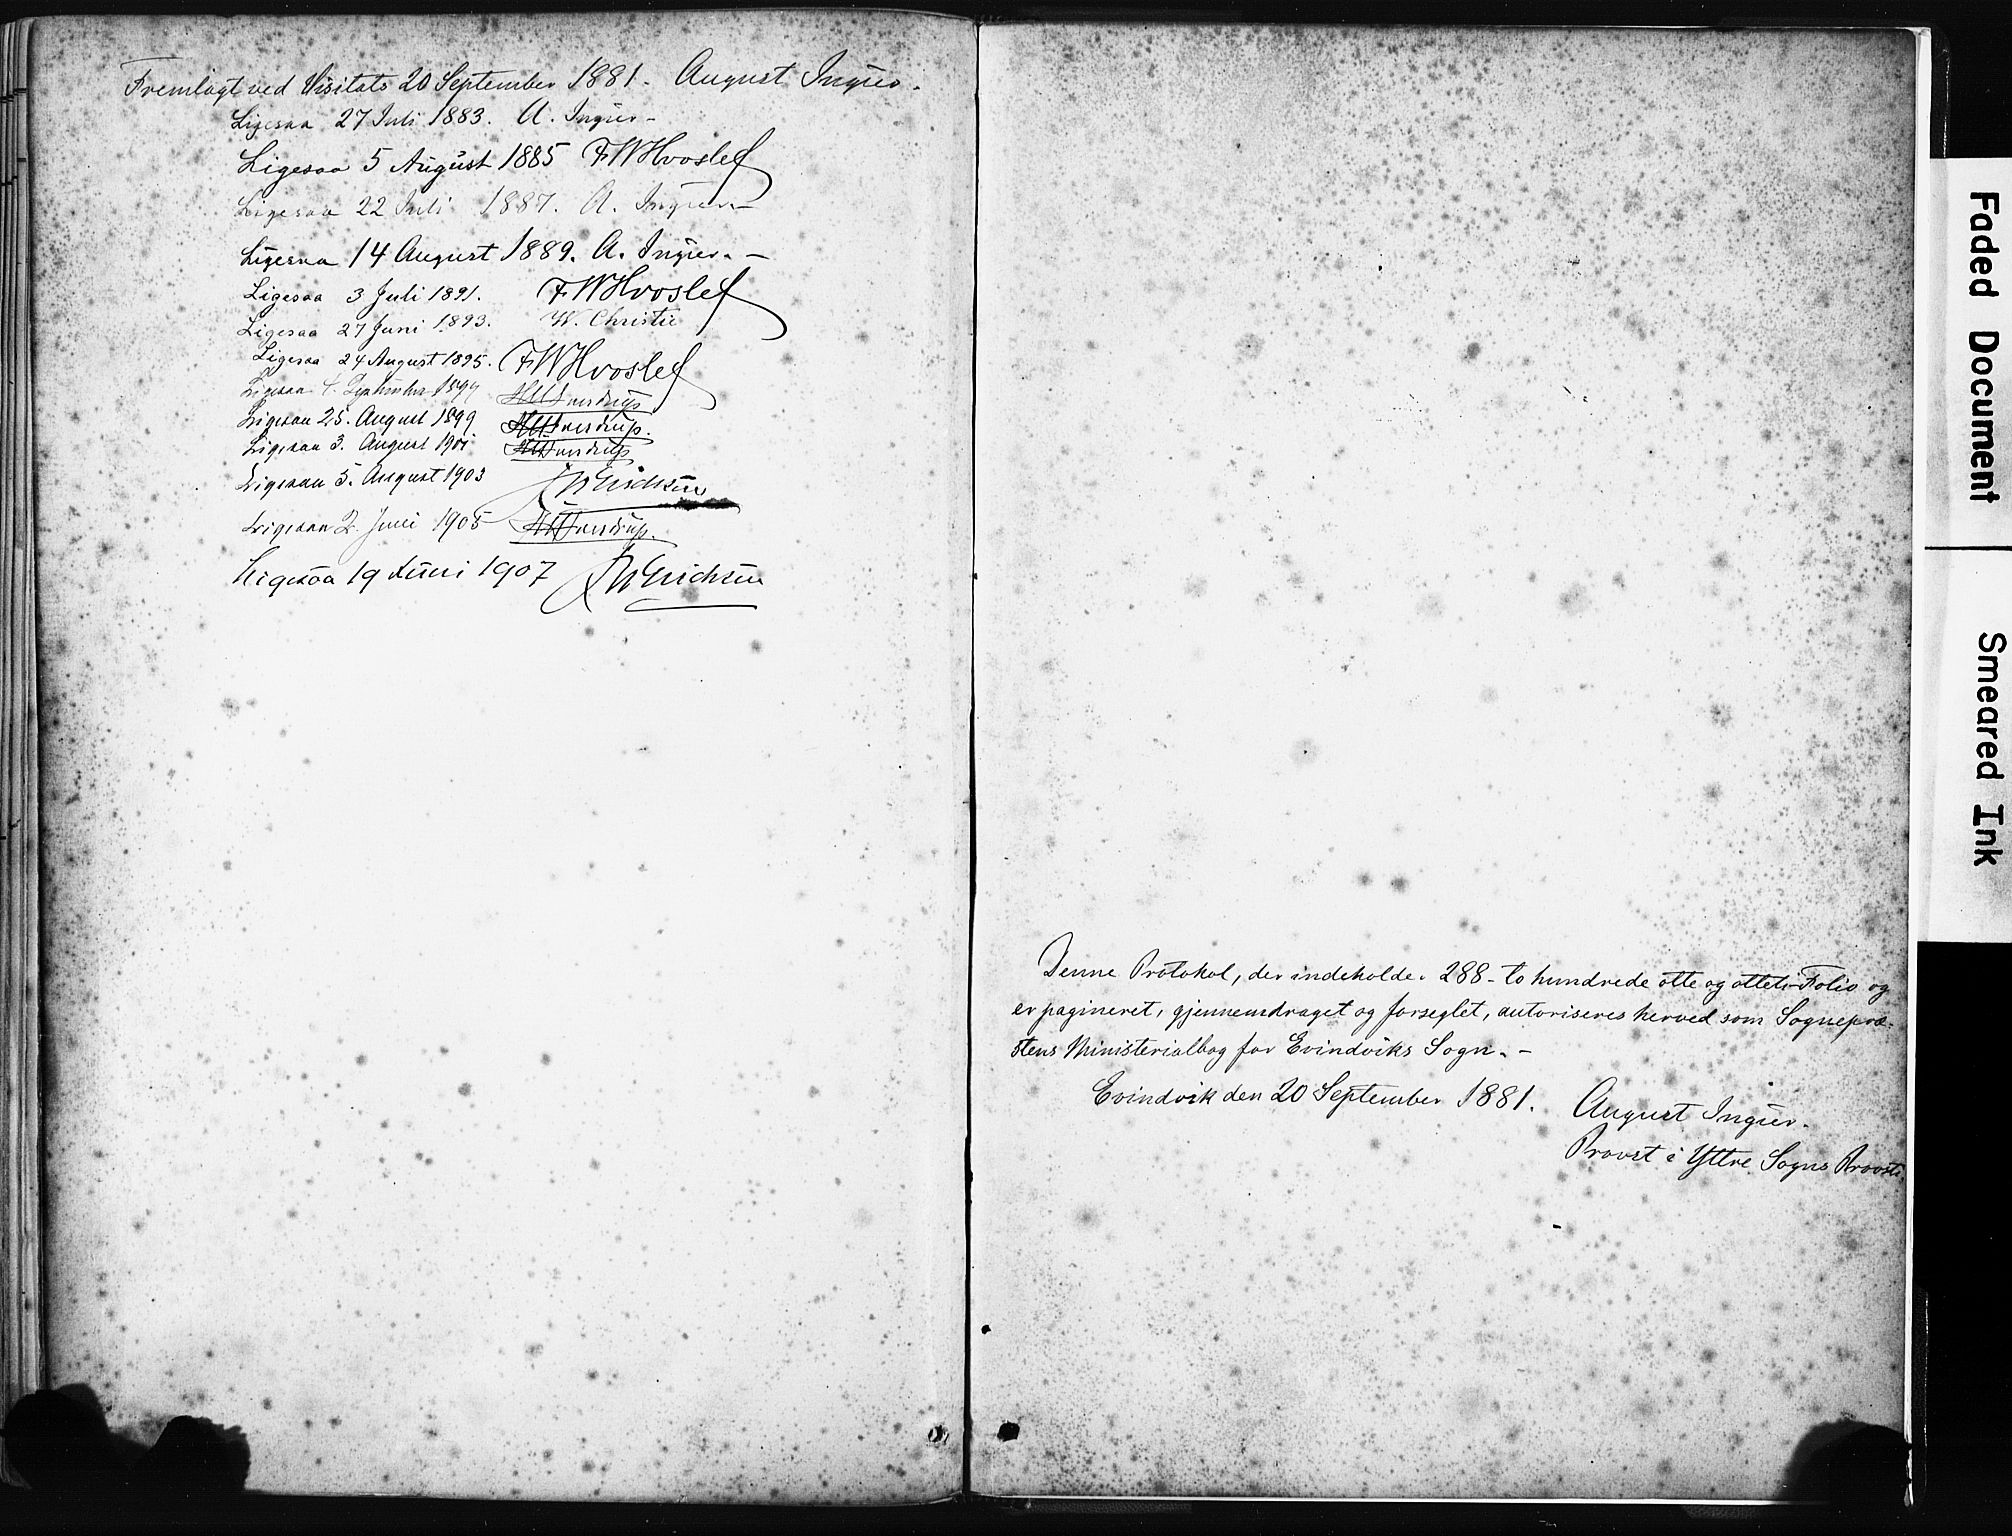 Fremlagt ved Visitats 20 September 1881. August Ingier.
Ligesaa 27 Juli 1883. A. Ingier
Ligesaa 5 August 1885 FWHvoslef
Ligesaa 22 Juli 1887. A. Ingier. —
Ligesaa 14 August 1889. A. Ingier. —
Ligesaa 3 Juli 1891. FWHvoslef
Ligesaa 27 Juni 1893. W. Christie
Ligesaa 24 August 1895. FWHvoslef
Ligesaa September
Ligesaa 25. August 1899
Ligesaa 3. August 1901
Ligesaa 5. August 1903 Erichsen
Ligesaa 2. Juni 1905
Ligesaa 19 Juni 1907 Erichsen
Denne Protokol, der indeholder 288 - to hundrede otte og otteti - Folio og
er pagineret, gjennemdraget og forseglet, autoriseres herved som Sognepræ-
stens Ministerialbog for Evindviks Sogn. —
Evindvik den 20 September 1881. August Ingier.
Provst i Yttre Sogns Provsti
Faded Document
Smeared Ink